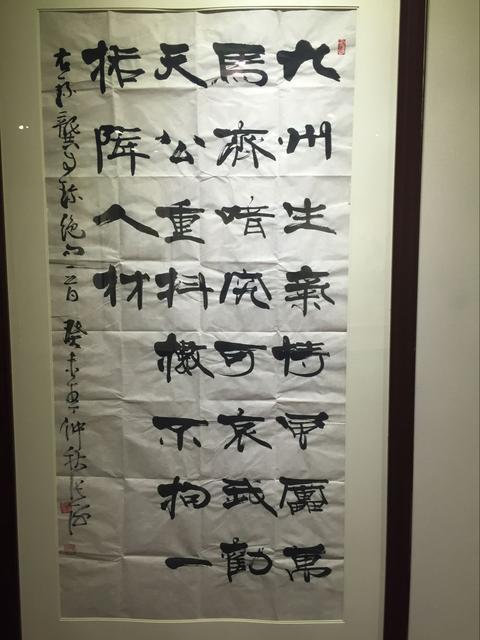 九州生氣恃風靁萬
馬齊喑究可哀我勸
天公重抖擻不拘一
格降人材
右錄龔自珍絕句一首 癸未年仲秋